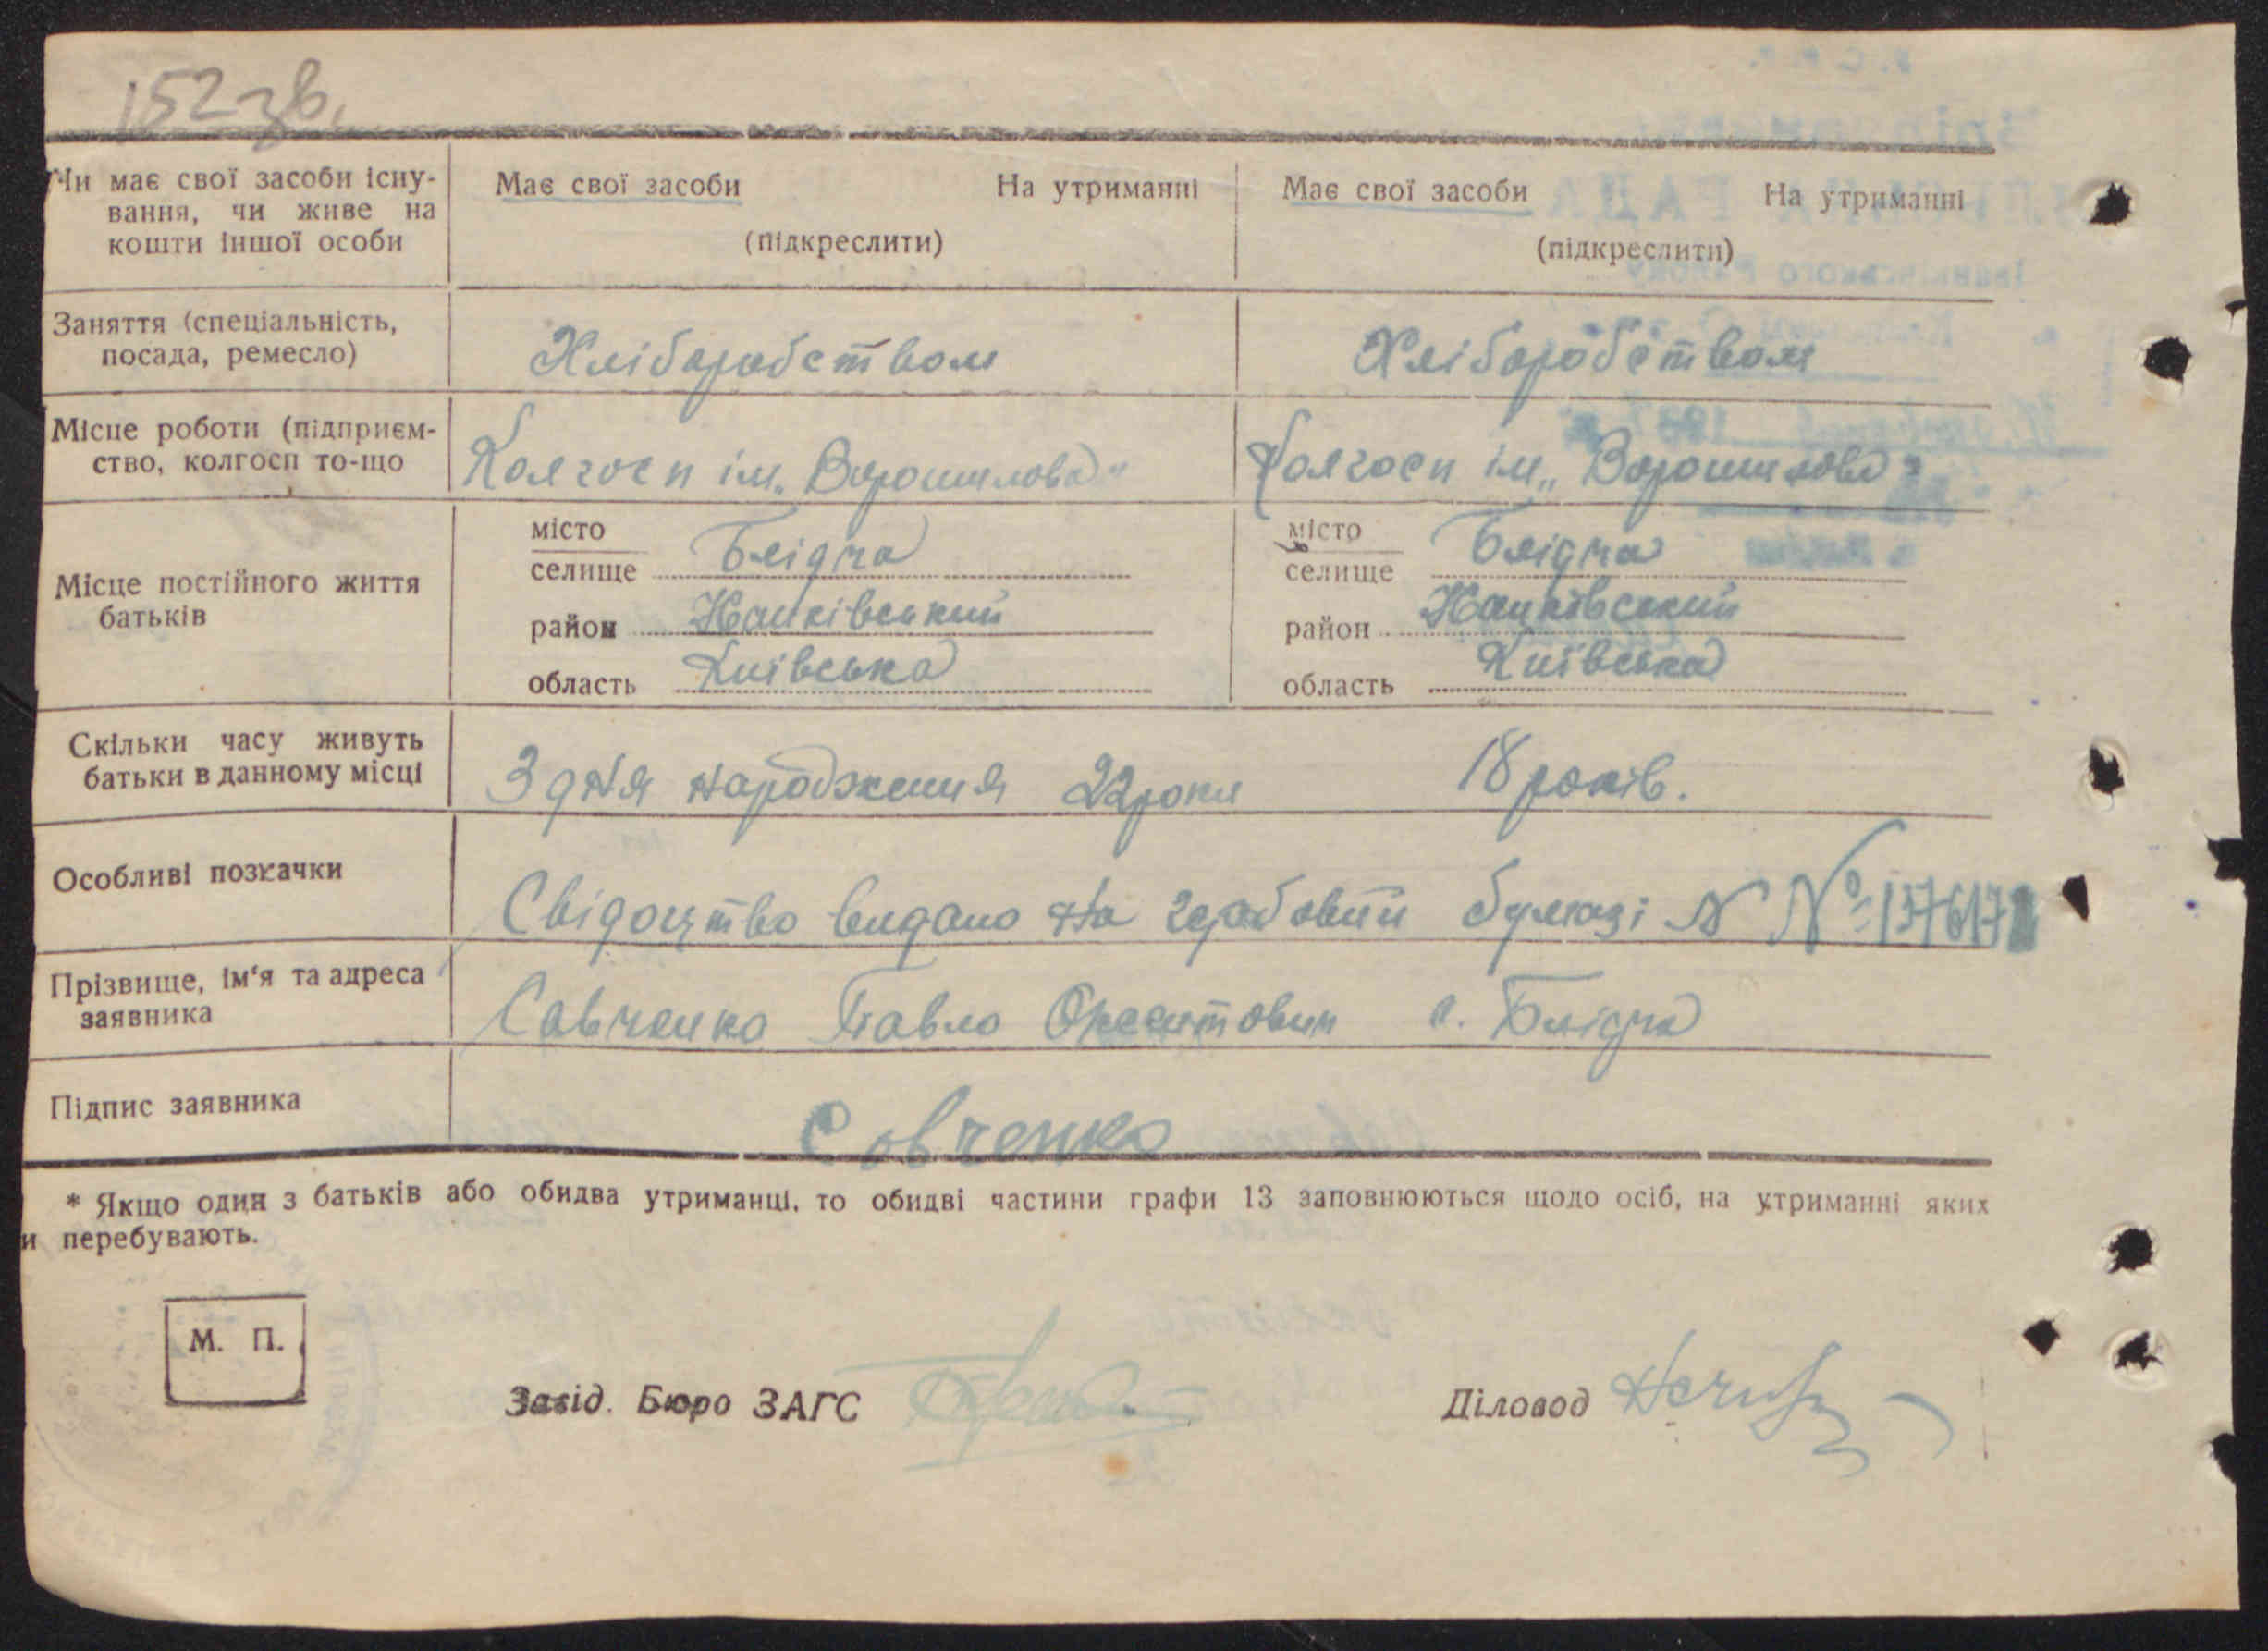 152 зв.
Чи має свої засоби існу-
вання, чи живе на
кошти іншої особи
Має свої засоби На утриманні
(підкреслити)
Має свої засоби На утриманні
(підкреслити)
Заняття (спеціальність,
посада, ремесло)
Хліборобством
Хліборобством
Місце роботи (підприєм-
ство, колгосп то-що
Колгосп ім. „Ворошилова"
Колгосп ім „Ворошилова"
Місце постійного життя
батьків
місто
селище Блідча
район
область Київська
місто
селище Блідча
район
область Київська
Скільки часу живуть
батьки в данному місці
З дня народження 22 роки
18 років.
Особливі позначки
Свідоцтво видано на бумазі N №
Прізвище, ім'я та адреса
заявника
Савченко Павло с. Блідча
Підпис заявника
Савченко
* Якщо один з батьків або обидва утриманці, то обидві частини графи 13 заповнюються щодо осіб, на утриманні яких
и перебувають.
М. П.
Завід. Бюро ЗАГС
Діловод